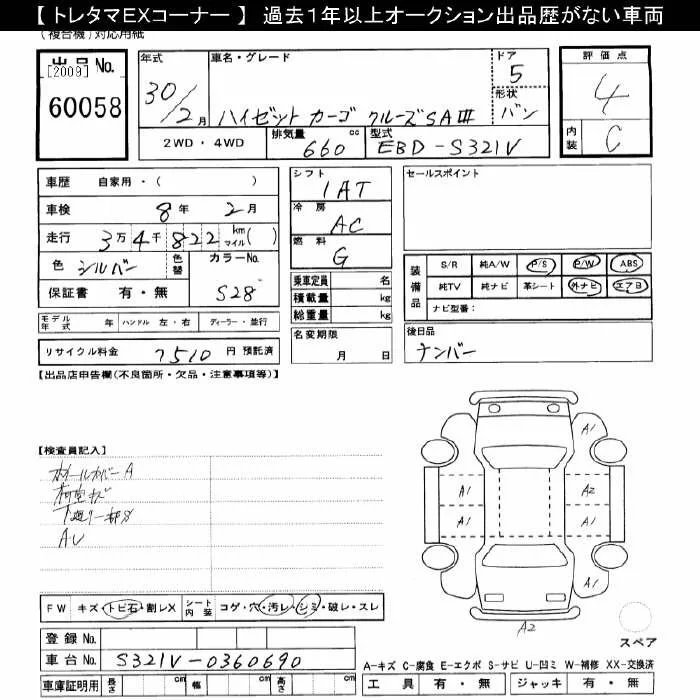 【 トレタマEXコーナー 】 過去1年以上オークション出品歴がない車両
(複合機)対応用紙
出品No. [2009] 60058
年式 30/2月
車名・グレード ハイゼット カーゴ クルーズSAⅢ
ドア 5
形状 バン
評価点 4
内装 C
2WD ・ 4WD
排気量 660 cc
型式 EBD-S321V
車歴 自家用・( )
車検 8年 2月
走行 3万4千822 km マイル( )
色 シルバー 色替 カラーNo. S28
保証書 有・無
シフト IAT
冷房 AC
燃料 G
乗車定員 名
積載量 kg
総重量 kg
セールスポイント
装備品 S/R 純A/W P/S P/W ABS
純TV 純ナビ 革シート 外ナビ エアB
ナビ型番:
モデル年式 年 ハンドル 左・右 ディーラー・並行
リサイクル料金 7510 円 預託済
名変期限 月 日
後日品 ナンバー
【出品店申告欄(不良箇所・欠品・注意事項等)】
【検査員記入】
ホイールカバーA
荷室キズ
下廻り一部S
AU
A1
A1 A2
A1 A1
A1
A2
スペア
FW キズ・トビ石・割レX シート内装 コゲ・穴・汚レ・シミ・破レ・スレ
登録No.
車台No. S321V-0360690
車庫証明用 長さ cm 幅 cm 高さ cm
A-キズ C-腐食 E-エクボ S-サビ U-凹ミ W-補修 XX-交換済
工具 有・無 ジャッキ 有・無